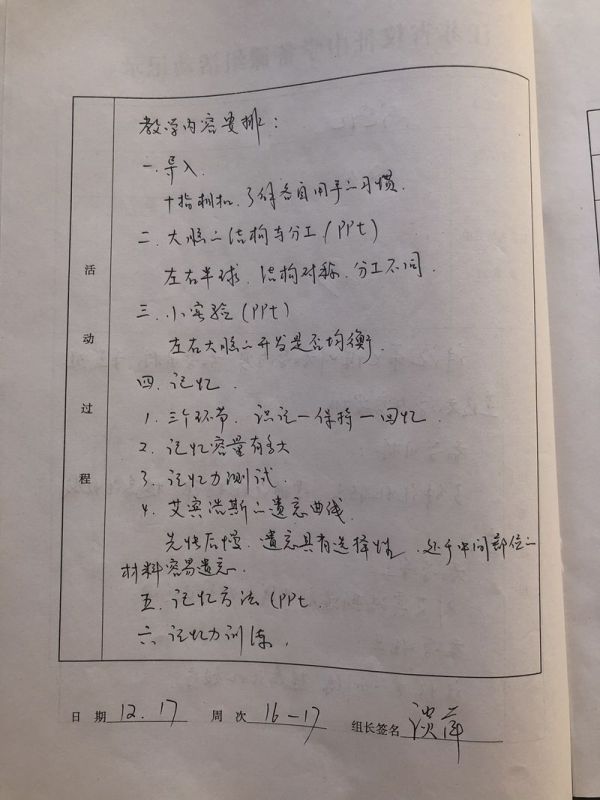 教学内容安排：
一.导入.
十指相扣，了解各自用手之习惯.
二.大脑之结构与分工(PPt)
左右半球，结构对称，分工不同.
三.小实验(PPt)
左右大脑之开发是否均衡.
四.记忆.
1.三个环节.识记－保持－回忆.
2.记忆容量有多大
3.记忆力测试.
4.艾宾浩斯之遗忘曲线.
先快后慢.遗忘具有选择性.处于中间部位之
材料容易遗忘.
五.记忆方法(PPt
六.记忆力训练.
活动过程
日期 12.17 周次 16－17 组长签名